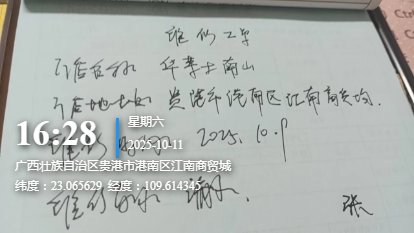 维修工单
门店名称 华莱士南山
门店地址 贵港市港南区江南商贸城
维修时间 2025.10.9
16:28
星期六
2025-10-11
广西壮族自治区贵港市港南区江南商贸城
纬度：23.065629 经度：109.614345
维修
张